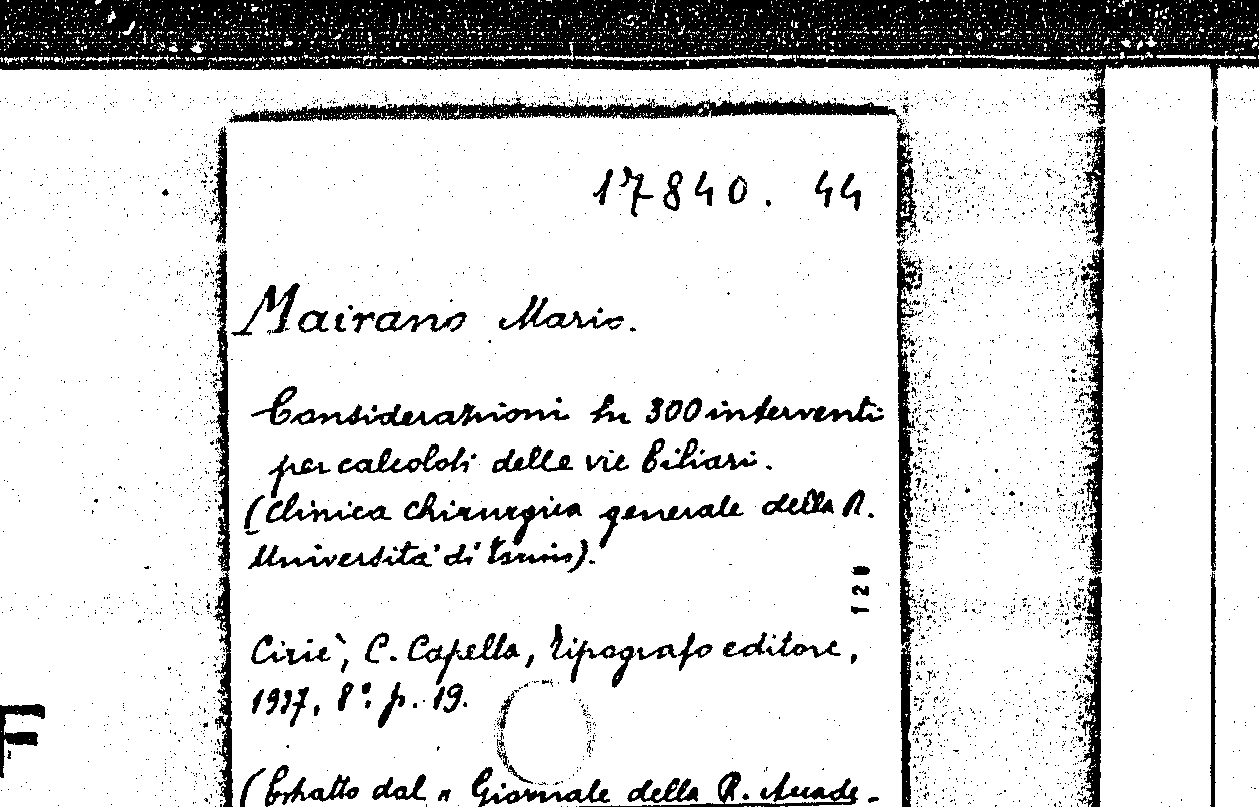 17840. 44
Mairano Mario.
Considerazioni su 300 interventi
per calcolosi delle vie biliari.
(Clinica chirurgica generale della R.
Università di Torino).
120
Ciriè, C. Capella, tipografo editore,
1937, 8º. p. 19.
F
(Estratto dal " Giornale della R. Accade-